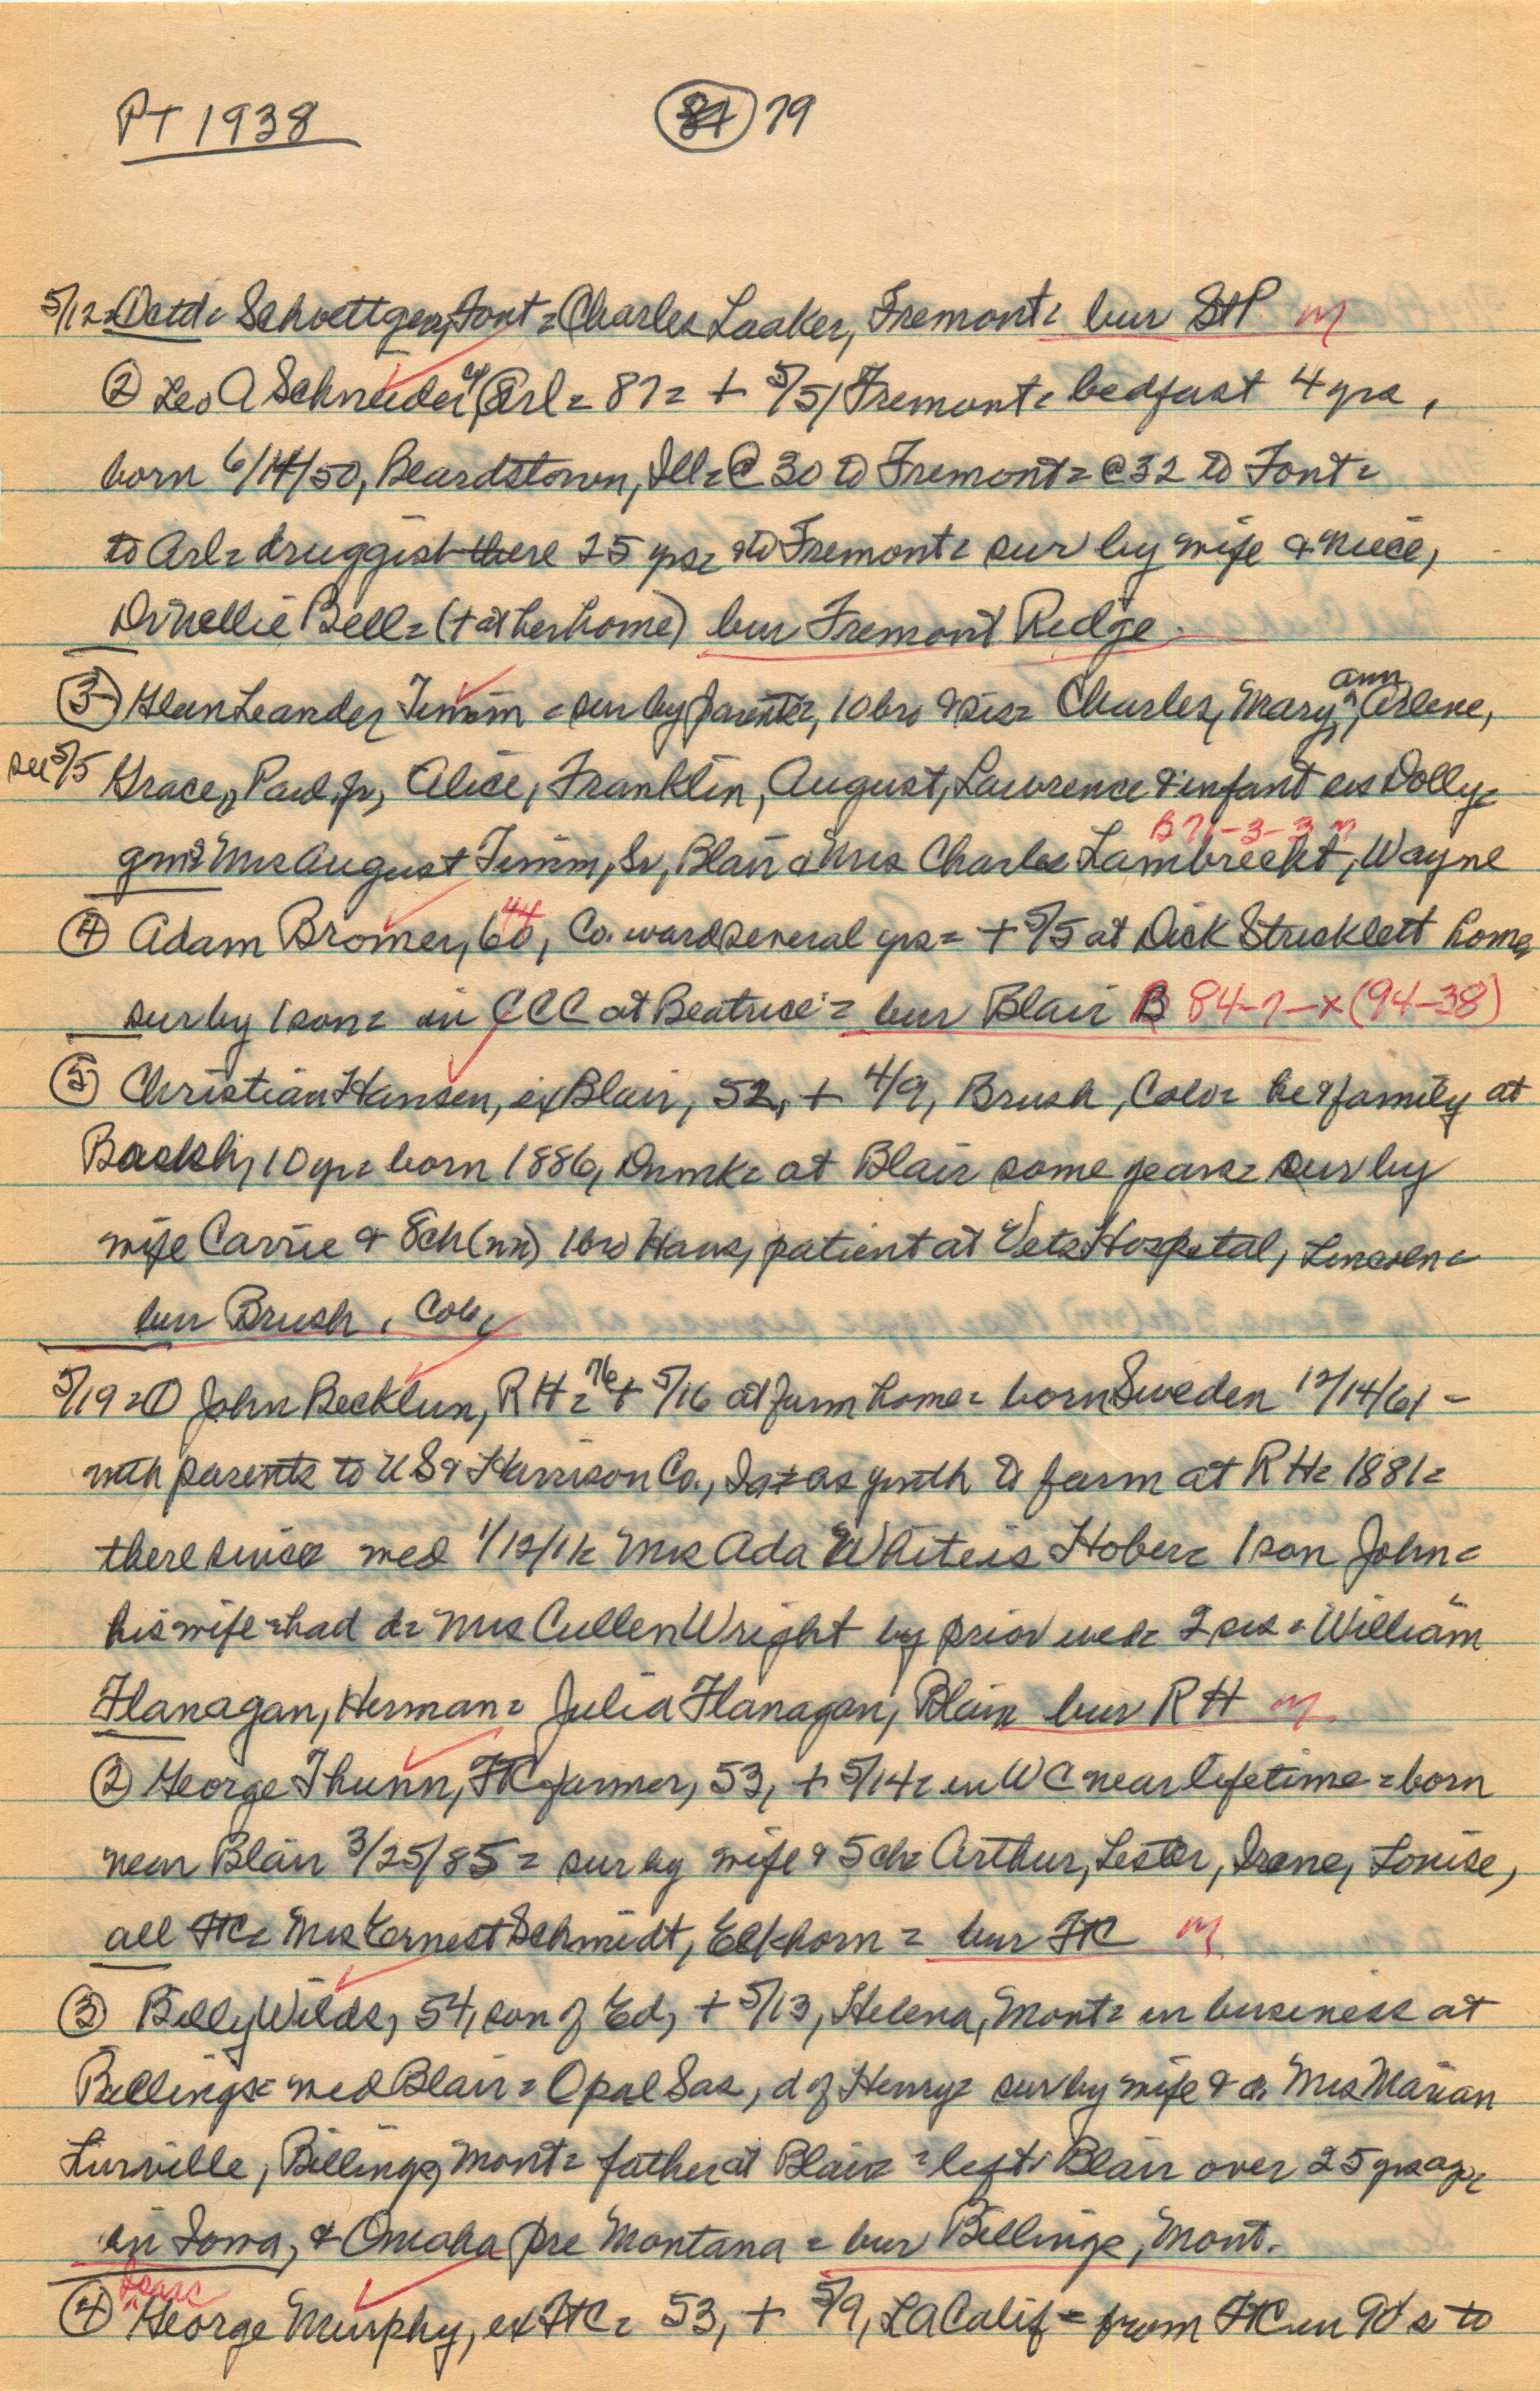 PT 1938 84 79
5/12 = Octd = Schoettger, Font = Charles Laaker, Fremont = bur StP m
② Leo A Schneider, Arl = 87 = + 5/5/ Fremont = bedfast 4 yrs,
born 6/14/50, Beardstown, Ill = @ 30 to Fremont = @ 32 to Font =
to Arl = druggist there 25 yrs = & to Fremont = sur by wife & niece,
Dr Nellie Bell = (+ at her home) bur Fremont Ridge.
③ Glen Leander Timm = sur by parents, 10 bro & sis = Charles, Mary ann, Arlene,
see 5/5 Grace, Paul, Jr, Alice, Franklin, August, Lawrence & infant sis Dolly =
B 71-3-3 m
gms Mrs August Timm, Sr, Blair & Mrs Charles Lambrecht, Wayne
④ Adam Bromer, 60, 44 Co. ward several yrs = + 5/5 at Dick Stricklett home,
sur by 1 son = in CCC at Beatrice = bur Blair B 84-7-x (94-38)
⑤ Christian Hansen, ex Blair, 52, + 4/9, Brush, Colo = he & family at
10 yrs = born 1886, Dnmk = at Blair some years = sur by
wife Carrie & 8 ch (nn) 1 bro Hans, patient at Vets Hospital, Lincoln =
bur Brush, Colo,
5/19 = ① John Becklun, RH = 76 + 5/16 at farm home = born Sweden 12/14/61 -
with parents to US & Harrison Co., Ia = as youth to farm at RH = 1881 =
there since med 1/12/11 = Mrs Ada Whiteis Hober = 1 son John =
his wife = had d = Mrs Cullen Wright by prior wed = 2 sis = William
Flanagan, Herman = Julia Flanagan, Blair bur RH m
② George Thunn, FtC farmer, 53, + 5/14 = in WC near lifetime = born
near Blair 3/25/85 = sur by wife & 5 ch = Arthur, Lester, Irene, Louise,
all FtC = Mrs Ernest Schmidt, Elkhorn = bur FtC m
③ Billy Wilds, 54, son of Ed, + 5/13, Helena, Mont = in business at
Billings = med Blair = Opal Sas, d of Henry = sur by wife & d. Mrs Marian
Linville, Billings, Mont = father at Blair = left Blair over 25 yrs ago =
in Iowa, & Omaha pre Montana = bur Billings, Mont.
④ Isaac George Murphy, ex FtC = 53, + 5/9, LA Calif = from FtC in 90's to